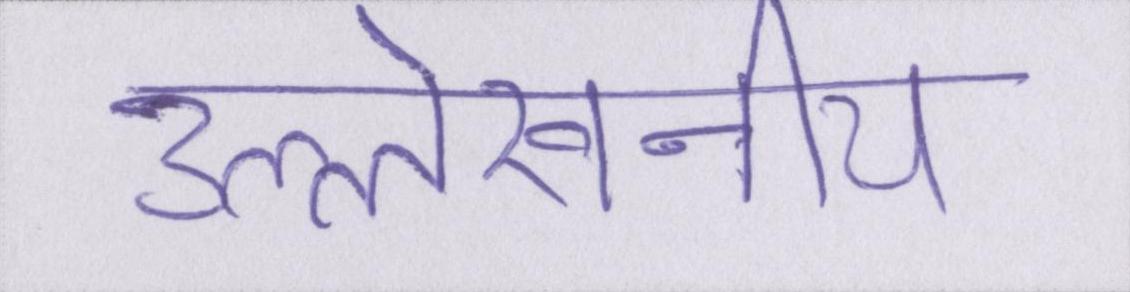 उल्लेखनीय